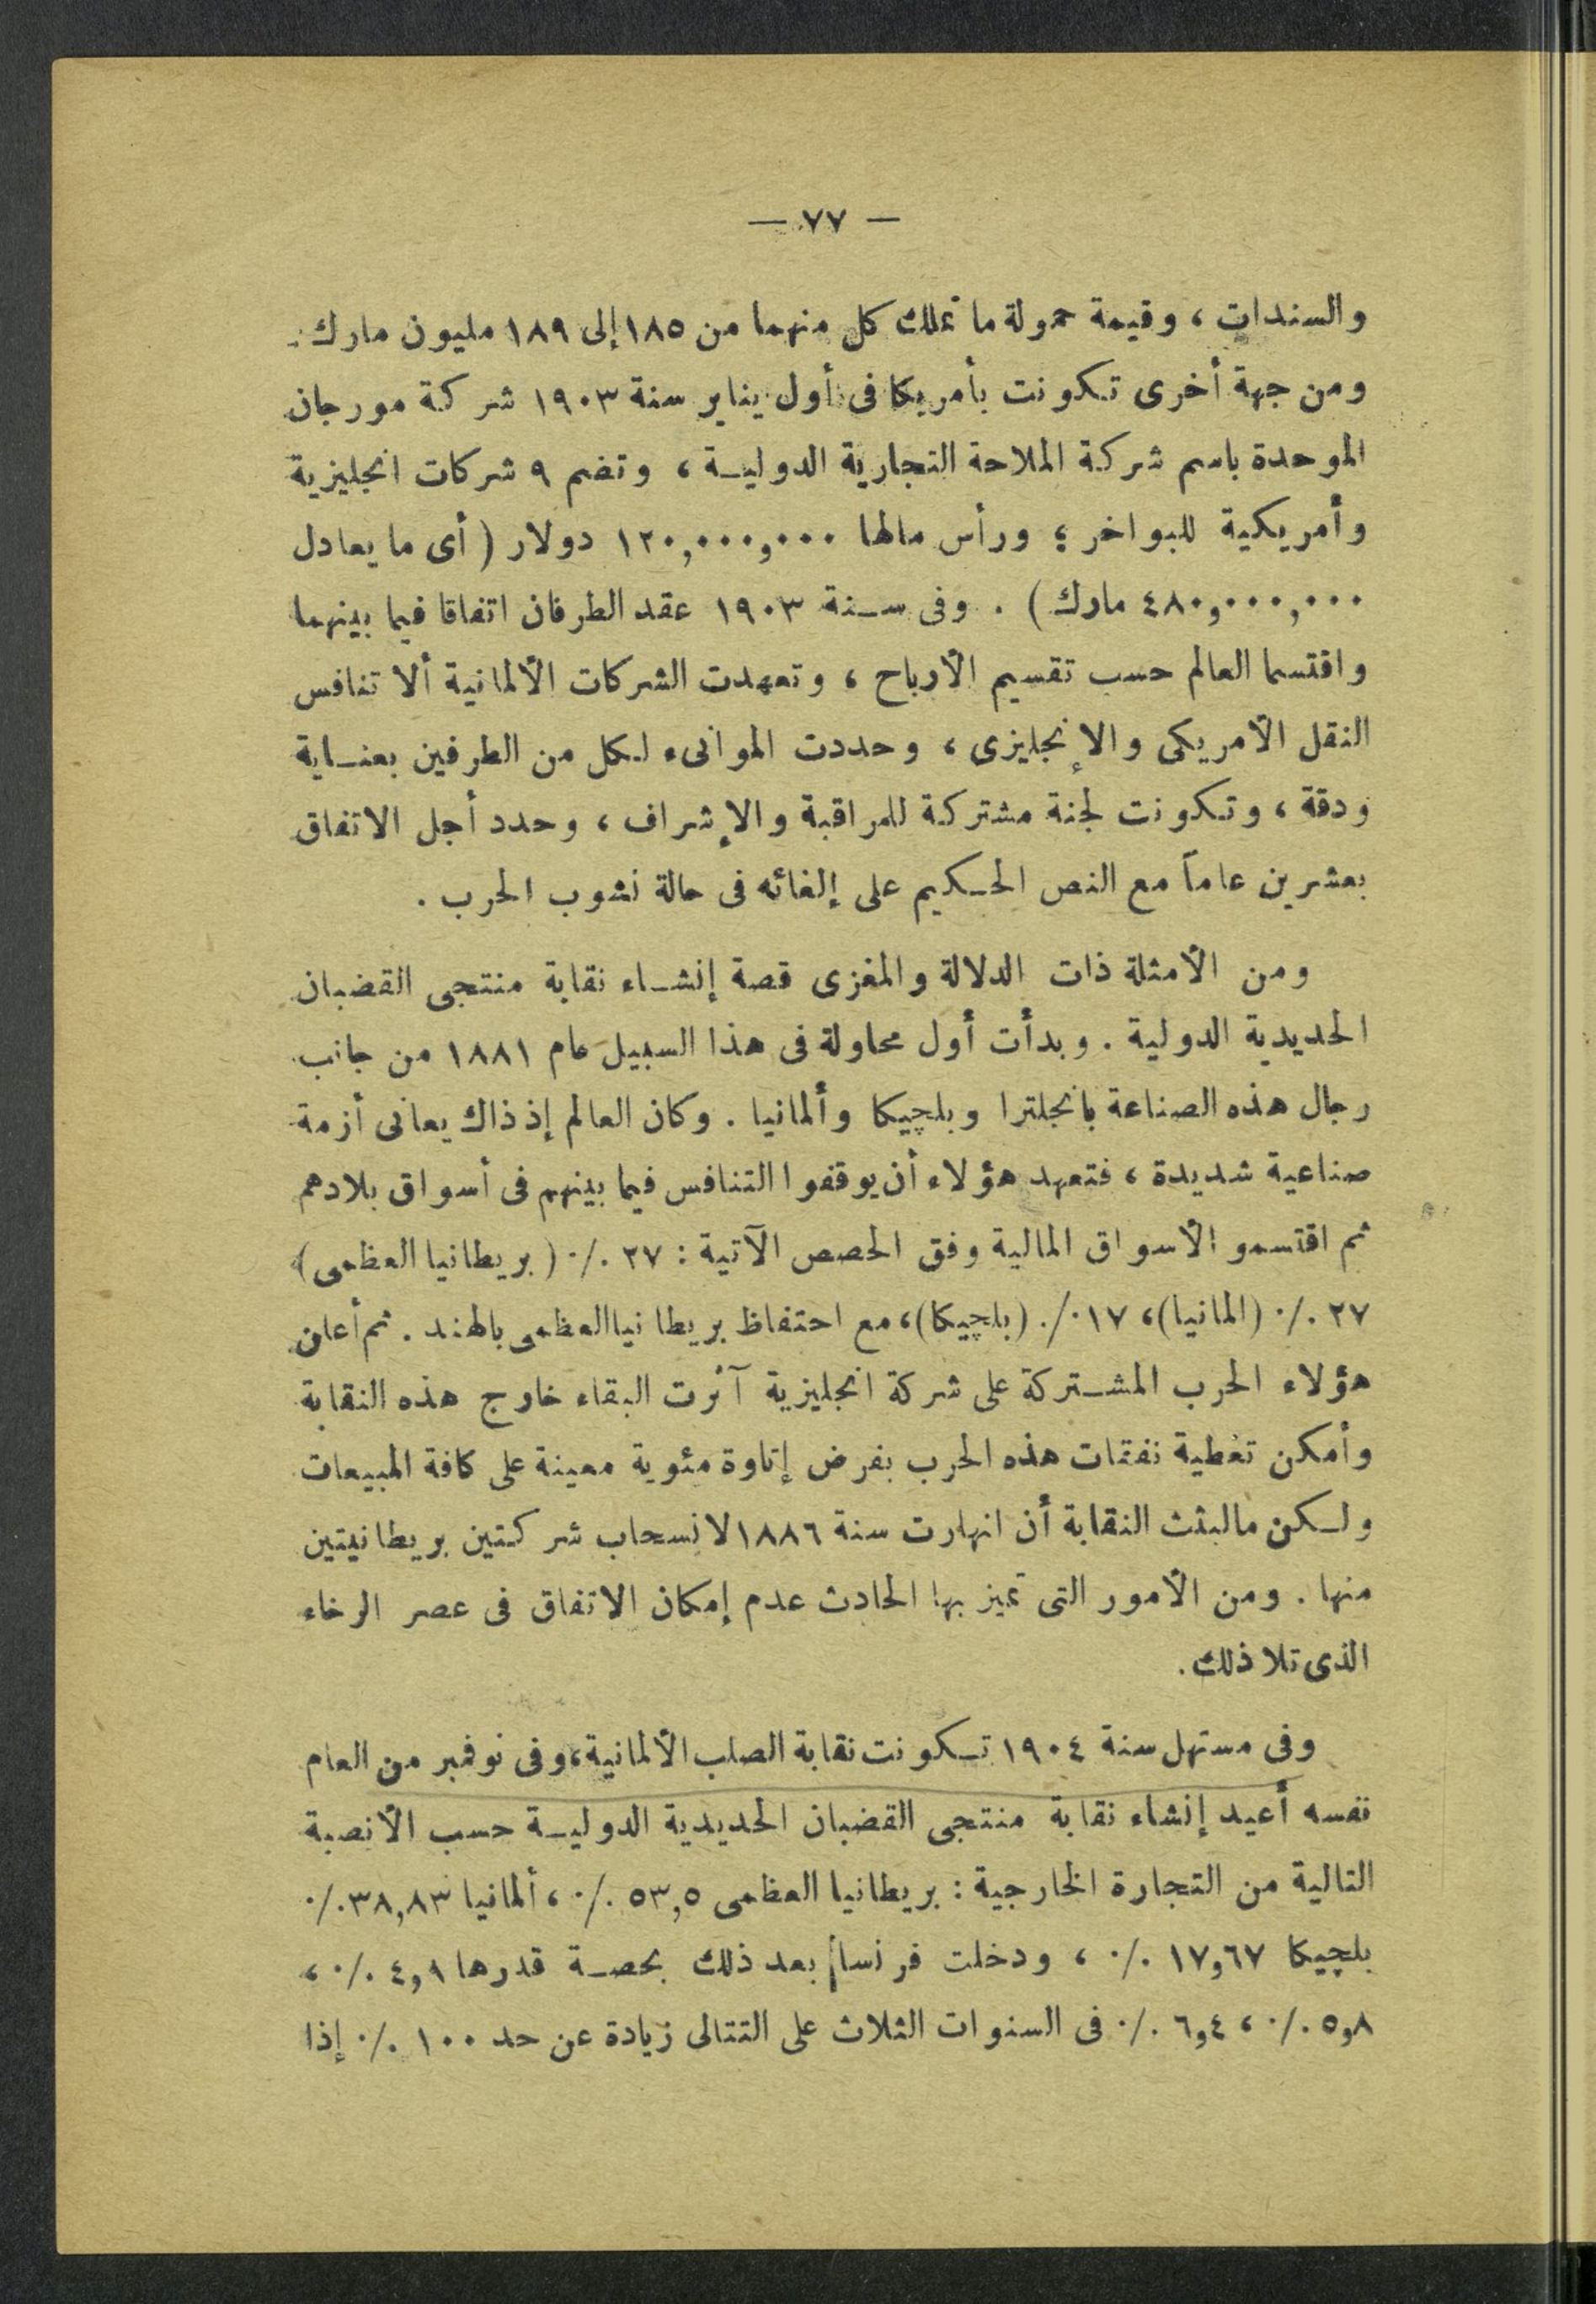 — ٧٧ —
والسندات ، وقيمة حمولة ما تملك كل منهما من ١٨٥ إلى ١٨٩ مليون مارك .
ومن جهة أخرى تكونت بأمريكا فى أول يناير سنة ١٩٠٣ شركة مورجان
الموحدة باسم شركة الملاحة التجارية الدولية ، وتضم ٩ شركات انجليزية
وأمريكية للبواخر ؛ ورأس مالها ١٢٠,٠٠٠,٠٠٠ دولار ( أى ما يعادل
٤٨٠,٠٠٠,٠٠٠ مارك ) . وفى سنة ١٩٠٣ عقد الطرفان اتفاقا فيما بينهما
واقتسما العالم حسب تقسيم الأرباح ، وتعهدت الشركات الألمانية ألا تنافس
النقل الأمريكى والإنجليزى ، وحددت الموانىء لكل من الطرفين بعناية
ودقة ، وتكونت لجنة مشتركة للمراقبة والإشراف ، وحدد أجل الاتفاق
بعشرين عاماً مع النص الحكيم على إلغائه فى حالة نشوب الحرب .
ومن الأمثلة ذات الدلالة والمغزى قصة إنشاء نقابة منتجى القضبان
الحديدية الدولية . وبدأت أول محاولة فى هذا السبيل عام ١٨٨١ من جانب
رجال هذه الصناعة بانجلترا وبلچيكا وألمانيا . وكان العالم إذ ذاك يعانى أزمة
صناعية شديدة ، فتعهد هؤلاء أن يوقفوا التنافس فيما بينهم فى أسواق بلادهم
ثم اقتسمو الأسواق المالية وفق الحصص الآتية : ٢٧ ٪ ( بريطانيا العظمى )
٢٧ ٪ (المانيا)، ١٧ ٪ (بلچيكا)، مع احتفاظ بريطانيا العظمى بالهند . ثم أعلن
هؤلاء الحرب المشتركة على شركة انجليزية آثرت البقاء خارج هذه النقابة
وأمكن تغطية نفقات هذه الحرب بفرض إتاوة مئوية معينة على كافة المبيعات
ولكن مالبثت النقابة أن انهارت سنة ١٨٨٦ لانسحاب شركتين بريطانيتين
منها . ومن الأمور التى تميز بها الحادث عدم إمكان الاتفاق فى عصر الرخاء
الذى تلا ذلك .
وفى مستهل سنة ١٩٠٤ تكونت نقابة الصلب الألمانية، وفى نوفمبر من العام
نفسه أعيد إنشاء نقابة منتجى القضبان الحديدية الدولية حسب الأنصبة
التالية من التجارة الخارجية : بريطانيا العظمى ٥٣,٥ ٪ ، ألمانيا ٣٨,٨٣ ٪
بلچيكا ١٧,٦٧ ٪ ، ودخلت فرنسا بعد ذلك بحصة قدرها ٤,٩ ٪ ،
٥,٨ ٪ ، ٦,٤ ٪ فى السنوات الثلاث على التتالى زيادة عن حد ١٠٠ ٪ إذا